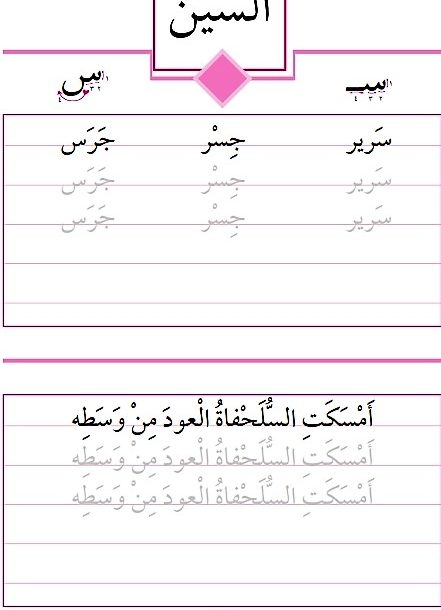 السين
سـ س
سَرير جِسْر جَرَس
سَرير جِسْر جَرَس
سَرير جِسْر جَرَس
أَمْسَكَتِ السُّلَحْفاةُ الْعودَ مِنْ وَسَطِه
أَمْسَكَتِ السُّلَحْفاةُ الْعودَ مِنْ وَسَطِه
أَمْسَكَتِ السُّلَحْفاةُ الْعودَ مِنْ وَسَطِه